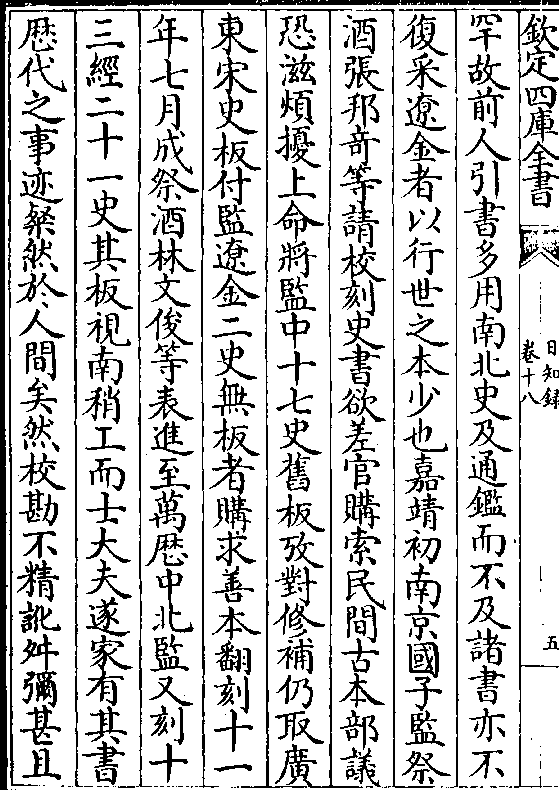 欽定四庫全書
日知録
卷十八
五
罕故前人引書多用南北史及通鑑而不及諸書亦不
復采遼金者以行世之本少也嘉靖初南京國子監祭
酒張邦奇等請校刻史書欲差官購索民間古本部議
恐滋煩擾上命將監中十七史舊板攷對修補仍取廣
東宋史板付監遼金二史無板者購求善本翻刻十一
年七月成祭酒林文俊等表進至萬歴中北監又刻十
三經二十一史其板視南稍工而士大夫遂家有其書
歴代之事迹粲然於人間矣然校勘不精訛舛彌甚且